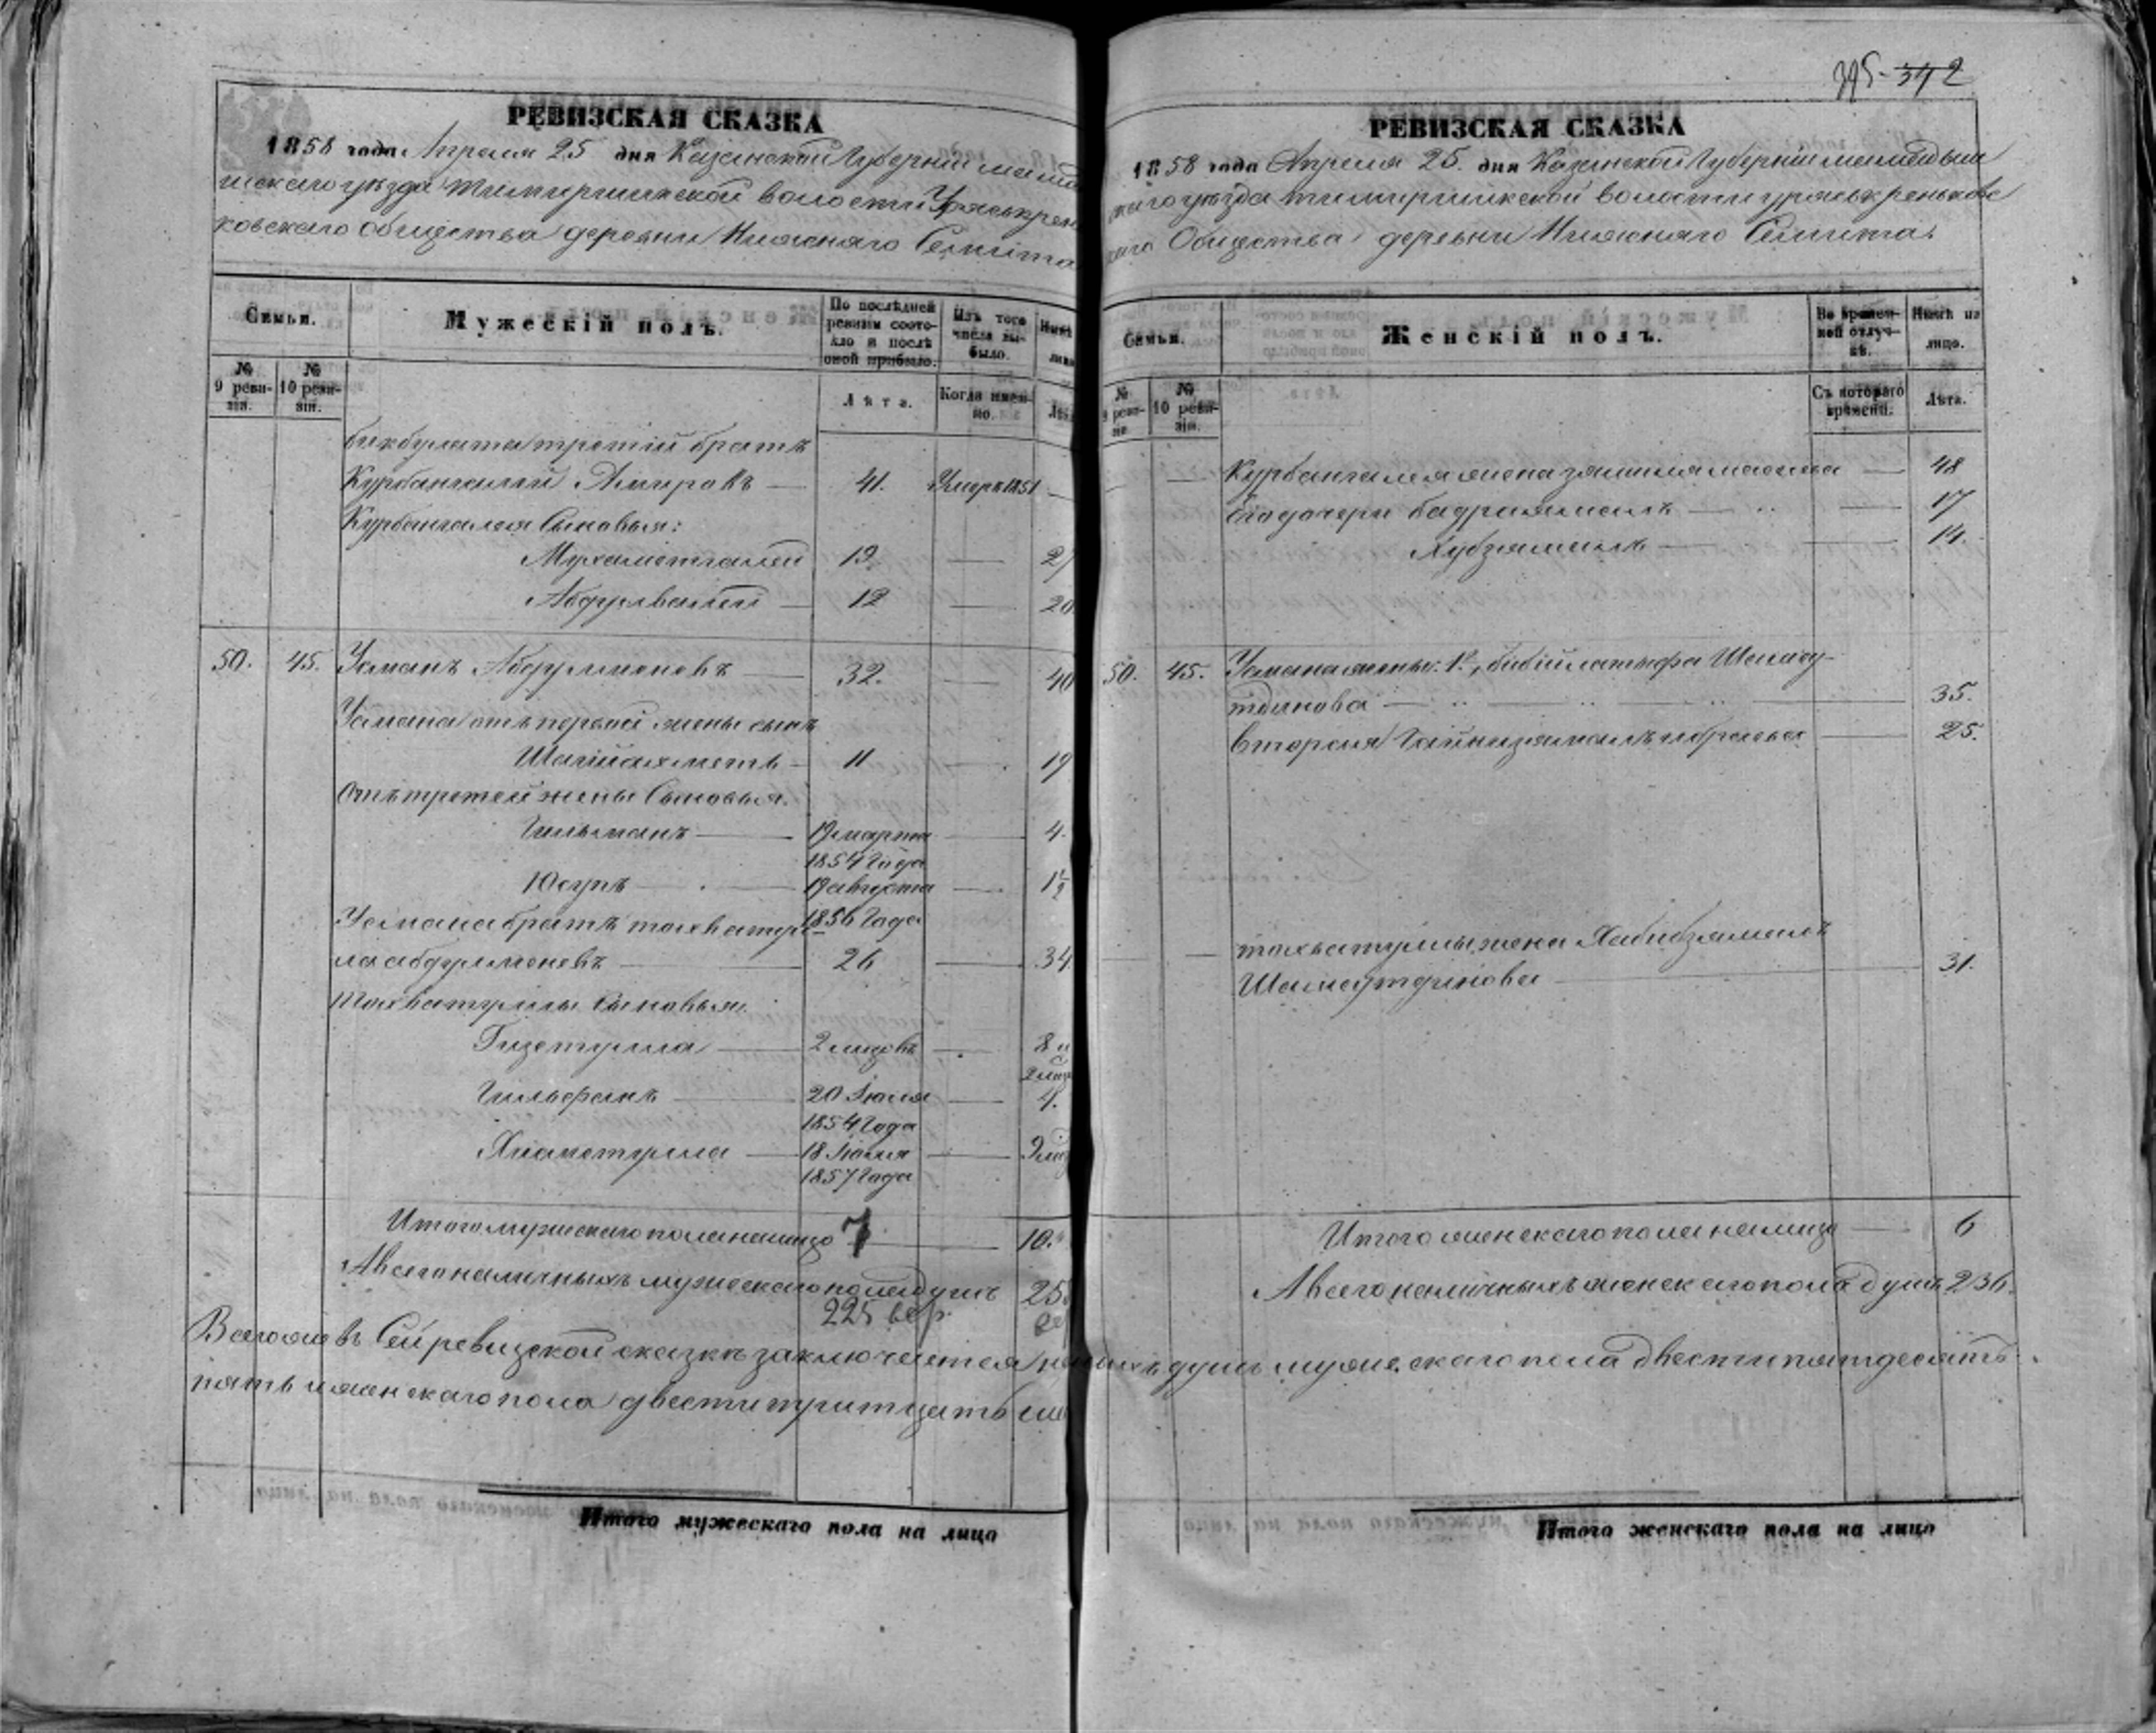 РЕВИЗСКАЯ СКАЗКА
1858 года Апреля 25 дня Казанской Губерніи мама
шскаго уѣзда волости
ковскаго Общества деревни Нижняго
Семьи.
Мужескій полъ.
По послѣдней ревизіи состояло и послѣ оной прибыло.
Изъ того числа выбыло.
№ 9 ревизіи.
№ 10 ревизіи.
Лѣта.
Когда именно.
бикбулата третій братъ
Курбангалій Амировъ — 41. Умеръ 1851 —
Курбангалея Сыновья:
Мухаметгалей 13 — 21
Абдулвалей — 12 — 20
50. 45. Усманъ Абдулменовъ — 32. — 40
Усмана отъ первой жены сынъ
Шагиахметъ — 11 — 19
Отъ третей жены Сыновья.
Гильманъ — 19 марта — 4.
1854 Года
Юсупъ — 19 августа — 1½
1856 Года
Усмана братъ тохватул
ла абдулменевъ — 26 — 34
Тохватуллы Сыновья.
Гизетулла — 2 мцовъ — 8 и
2 мцъ
Гильфанъ — 20 Іюля — 4.
1854 Года
Хиаметулла — 18 Іюля — 9 мц
1857 Года
Итого мужескаго пола на лицо 7 — 10.
А всего наличныхъ мужескаго пола душъ 25
225
Всего же въ Сей ревизской сказкѣ заключается
пять и женскаго пола двести тритцать ше
Итого мужескаго пола на лицо
395-342
РЕВИЗСКАЯ СКАЗКА
1858 года Апреля 25. дня Казанской Губерніи мамадыш
скаго уѣзда волости
скаго Общества деревни Нижняго
Семьи.
Женскій полъ.
Во временной отлучкѣ.
Нынѣ на лицо.
№ 9 ревизіи
№ 10 ревизіи.
Съ котораго времени.
Лѣта.
Курбангалея жена — 48
Его дочери бадрижамалъ — 17
Хубзямалъ — 14.
50. 45. Усмана жены: 1я, бибилатыфа Шамсу-
тдинова — 35.
вторая Гайнизямалъ — 25.
— тохватуллы жена Хабибзямалъ
Шамсутдинова — 31.
Итого женскаго пола на лицо — 6
А всего наличныхъ женскаго пола душъ 236.
душъ мужескаго пола двести пятдесятъ
Итого женскаго пола на лицо